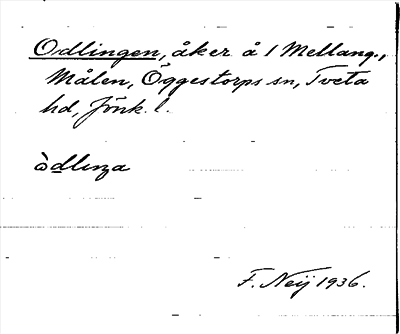 Odlingen, åker å 1 Mellang.,
Målen, Öggestorps sn, Tveta
hd, Jönk. l.
òdlıŋa
F. Neij 1936.